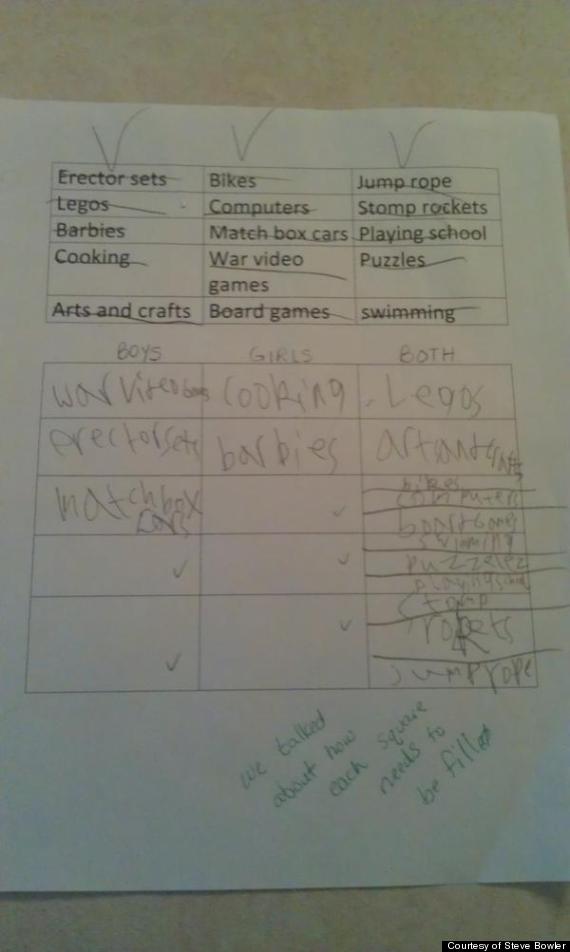 Erector sets Bikes Jump rope
Legos Computers Stomp rockets
Barbies Match box cars Playing school
Cooking War video Puzzles
games
Arts and crafts Board games swimming
BOYS GIRLS BOTH
cooking Legos
erectorsets barbies
bikes
matchbox computers
cars
boardGames
puzzelez
stomp
rokets
jumprope
we talked
about how
each square
needs to
be filled
Courtesy of Steve Bowler